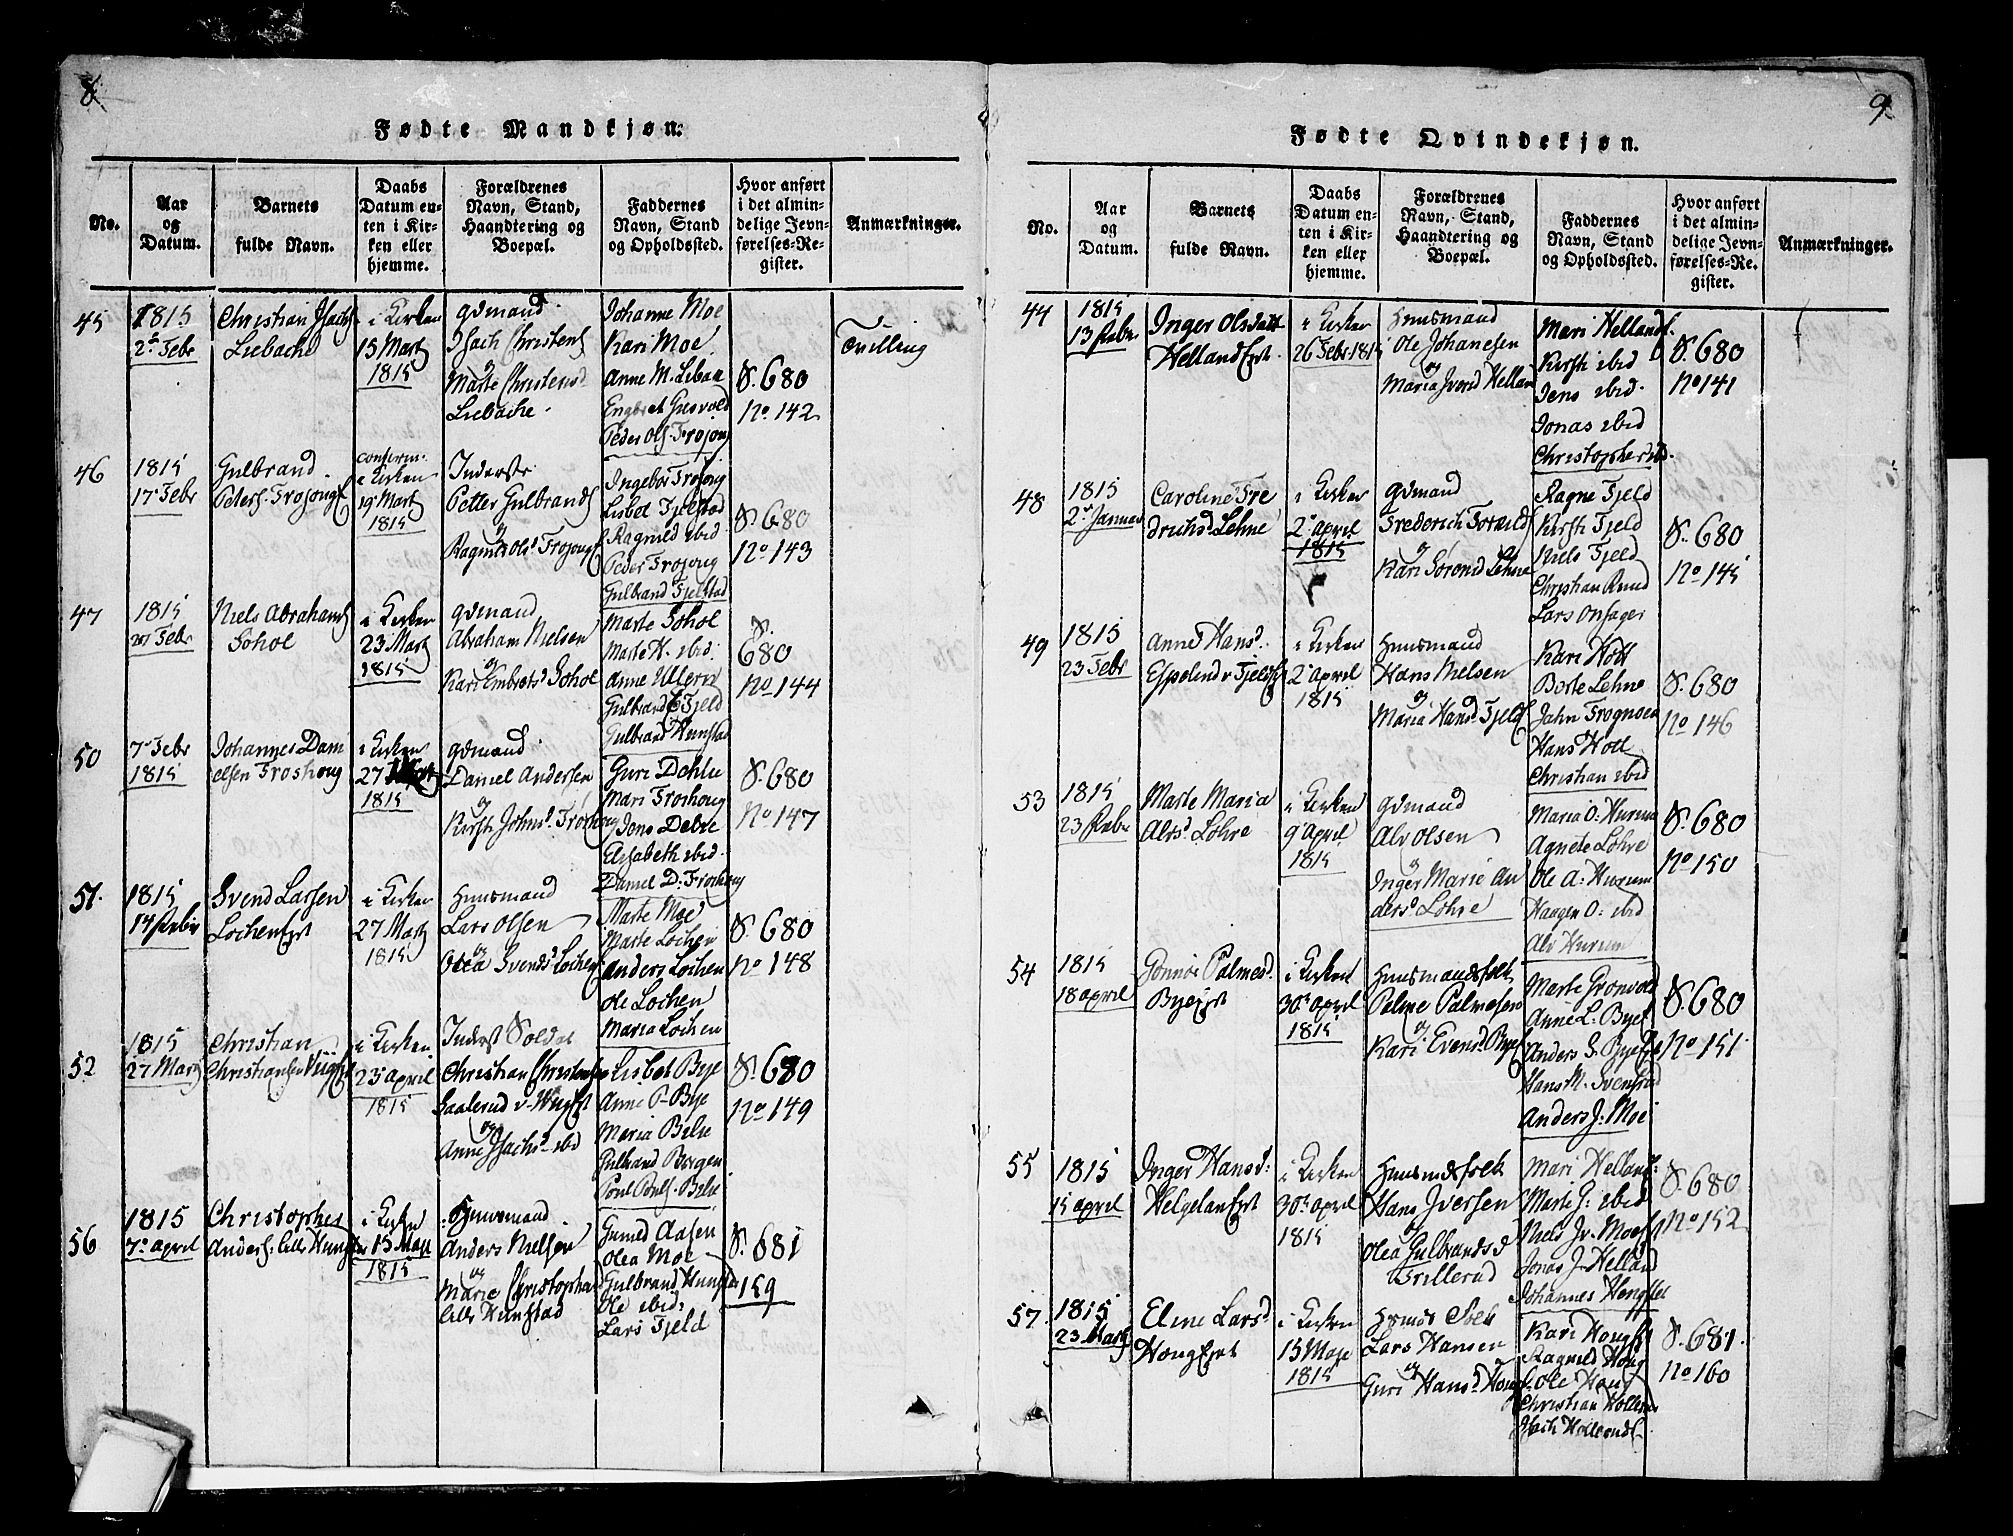 8.
Fødte Mandkjøn.
No.
Aar
og
Datum.
Barnets
fulde Navn.
Daabs
Datum en-
ten i Kir-
ken eller
hjemme.
Forældrenes
Navn, Stand,
Haandtering og
Boepæl.
Faddernes
Navn, Stand
og Opholdssted.
Hvor anført
i det almin-
delige Jevn-
førelses-Re-
gister.
Anmærkninger.
45
1815
2 Febr
Christian Isachs
Liebache
i Kirken
15 Marts
1815
Gdmand
Isach Christens
og
Marte Christensd
Liebache
Johanne Moe
Kari Moe
Anne M. Libak
Engbret Gresvold
Peder Ols. Frojong
S. 680
No. 142
Tvilling
46
1815
17 Febr
Gulbrand
Peters. Frojong
conferm.
i Kirken
19 Marts
1815
Inderste
Petter Gulbrands
og
Ragnild Ols. Frojong
Ingebor Frojong
Lisbet Fjelstad
Ragnild ibid
Peder Frojong
Gulbrand Fjelstad
S. 680
No. 143
47
1815
Febr
Niels Abrahams
Sohol
i Kirken
23 Marts
1815
Gdmand
Abraham Nielsen
og
Kari Embrets. Sohol
Marte Sohol
Marte H. ibid.
Anne Ulern
Gulbrand Fjeld
Gulbrand Hunstad
S.
680
No. 144
50
7 Febr
1815
Johannes Dani
elsen Froshoug
i Kirken
27
1815
Gdmand
Daniel Andersen
og
Kirsti Johns. Froshoug
Guri Dehlie
Mari Froshoug
Jens Dehlie
Elisabeth ibid.
Daniel D: Froshoug
S. 680
No. 147
51.
1815
14 Febr
Svend Larsen
Lochen Eyet
i Kirken
27 Marts
1815
Huusmand
Lars Olsen
og
Olea Svends. Lochen
Marte Moe
Marte Lochen
Anders Lochen
Ole Lochen
Maria Lochen
S. 680
No. 148
52
1815
27 Marts
Christian
Christiansen
i Kirken
23 April
1815
Inderst Soldat
Christian Christensen
og
Anne Isachs. ibid
Lisbet Bye
Anne P. Bye
Maria Belse
Gulbrand Borgen
Poul Pouls. Belse
S. 680
No. 149
56
1815
7 April
Christopher
Anders. Hunstad
i Kirken
15 Maje
1815
Huusmand
Anders Nielsen
og
Marie Christophers
Hunstad
Gunild Aasen
Olea Moe
Gulbrand Hunstad
Ole ibid.
Lars Fjeld
S. 681
159
9.
Fødte Qvindekjøn.
No.
Aar
og
Datum.
Barnets
fulde Navn.
Daabs
Datum en-
ten i Kir-
ken eller
hjemme.
Forældrenes
Navn, Stand,
Haandtering og
Boepæl.
Faddernes
Navn, Stand
og Opholdssted.
Hvor anført
i det almin-
delige Jevn-
førelses-Re-
gister.
Anmærkninger.
44
1815
13 Febr
Inger Olsdatt
Helland Eyet.
i Kirken
26 Febr 1815
Huusmand
Ole Johanesen
og
Maria Iversd Helland
Mari Helland
Kirsti ibid
Jens ibid.
Jonas ibid
Christopher ibid.
S. 680
No 141
48
1815
2 Januar
Caroline Fre
drichsd Lehne
i Kirken
2 April
1815
Gdmand
Frederich
og
Kari Sørensd Lehne
Ragne Fjeld
Kirsti Fjeld
Niels Fjeld
Christian Rund
Lars Onsager
S. 680
No. 145
49
1815
23 Febr
Anne Hansd.
Espelund v Fjeld
i Kirken
2 April
1815
Huusmand
Hans Nielsen
og
Maria Hansd Fjeld
Kari Holt
Berte Lehne
Jahn Frognsen
Hans Holt
Christian ibid
S. 680
No 146
53
1815
23 Febr
Marte Maria
Alvsd Lohre
i Kirken
9 April
1815
Gdmand
Alv Olsen
og
Inger Marie An
dersd Lohre
Maria O: Hurum
Agnete Lohre
Ole A: Hurum
Haagen O: ibid
Alv Hurum
S. 680
No 150
54
1815
18 April
Gonnor Palmesd.
Bye Eyet
i Kirken
30 April
1815
Huusmandsfolk
Palme Palmesen
og
Kari Evensd Bye
Marte Gronvold
Anne L: Bye
Anders S. Bye
Hans M. Svenstad
Anders J. Moe
S. 680
No 151
55
1815
15 April
Inger Hansd:
Helgeland Eyet
i Kirken
30 April
1815
Huusmdsfolk
Hans Iversen
og
Olea Gulbrandsd
Trillerud
Mari Helland
Marte J: ibid
Niels Iv. Moe
Jonas J. Helland
Johannes
S. 680
No 152
57.
1815
23 Marts
Eline Larsd
Houg Eyet
i Kirken
15 Maje
1815
Lars Hansen
og
Guri Hansd Houg
Kari Houg
Ragnild Houg
Ole Houg
Christian
S. 681.
No 160